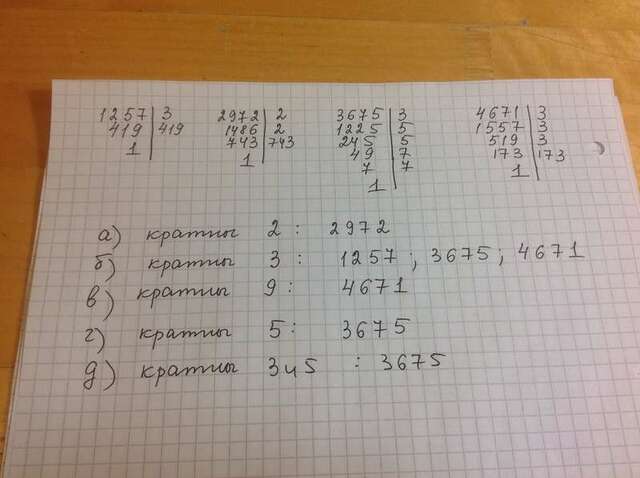 1257 | 3 2972 | 2 3675 | 3 4671 | 3
419 | 419 1486 | 2 1225 | 5 1557 | 3
1 743 | 743 245 | 5 519 | 3
1 49 | 7 173 | 173
7 | 7 1
1
а) кратны 2 : 2972
б) кратны 3 : 1257 ; 3675 ; 4671
в) кратны 9 : 4671
г) кратны 5 : 3675
д) кратны 3 и 5 : 3675